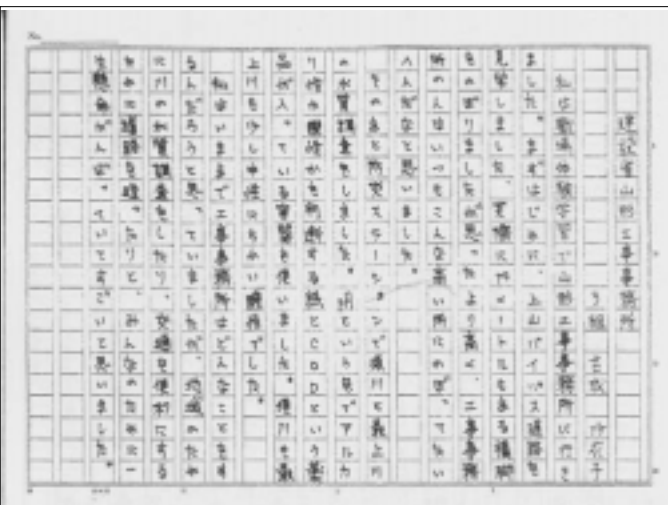 建設省山形工事事務所
組
私は職場体験学習で山形工事事務所に行き
ました。まずはじめに、上山バイパス道路を
見学しました。実際に メートルもある橋脚
をのぼりましたが思ったより高く、工事事務
所の人はいつもこんな高い所にのぼってたい
へんだなと思いました。
そのあと防災ステーションで須川と最上川
の水質調査をしました。 という でアルカ
リ性か酸性かを判断する紙とCODという薬
品が入っている 使いました。須川も最
上川も少し中性にちかい酸性でした。
私はいままで工事事務所はどんなことをす
るんだろうと思っていましたが、地域のため
に川の水質調査をしたり、交通を便利にする
ために道路を つたりと、みんなのために一
生懸命がんばっていてすごいと思いました。